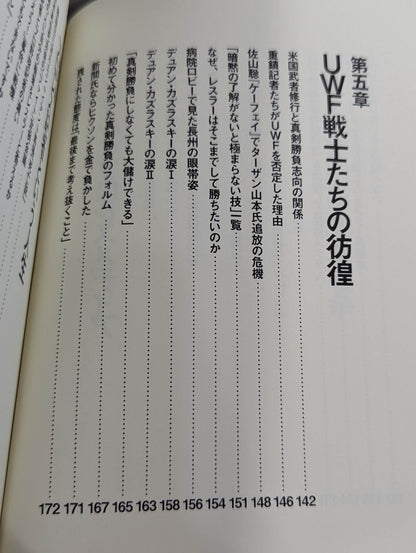 第五章
UWF戦士たちの彷徨
米国武者修行と真剣勝負志向の関係 142
重鎮記者たちがUWFを否定した理由 146
佐山聡『ケーフェイ』でターザン山本氏追放の危機 148
「暗黙の了解がないと極まらない技」一覧 151
なぜ、レスラーはそこまでして勝ちたいのか 154
病院ロビーで見た長州の眼帯姿 156
デュアン・カズラスキーの涙Ⅰ 158
デュアン・カズラスキーの涙Ⅱ 163
「真剣勝負にしなくても大儲けできる」 165
初めて分かった真剣勝負のフォルム 167
新間氏ならヒクソンを金で負かした 171
残された態度は、「最後まで考え抜くこと」 172